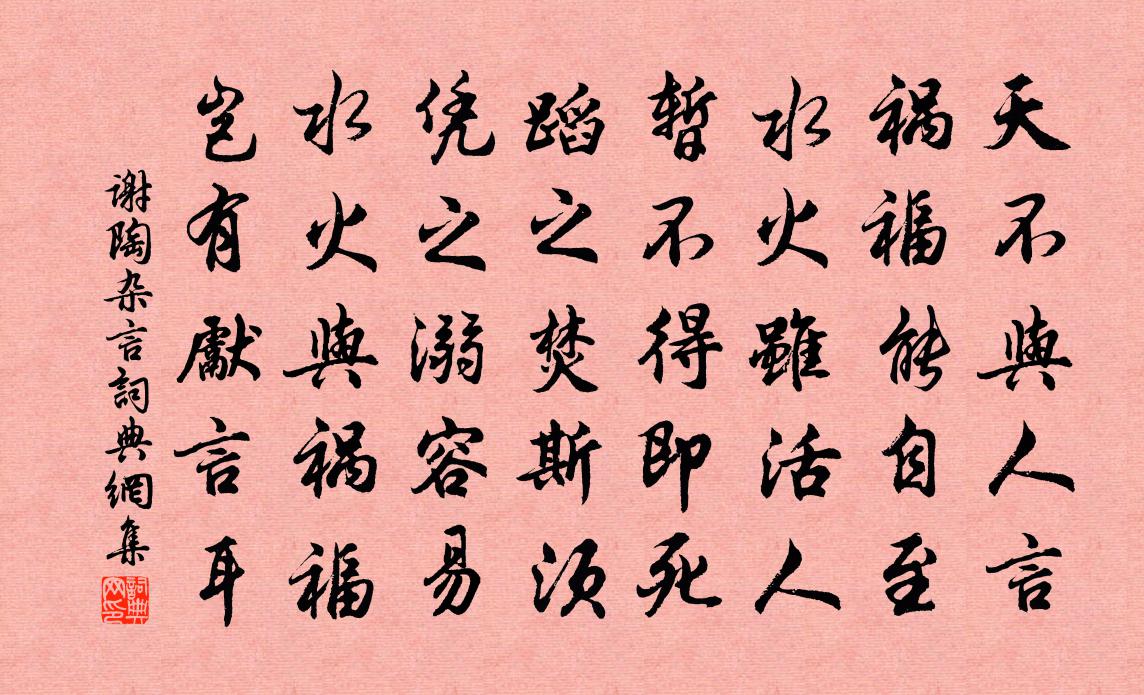 天不與人言
祸福能自至
水火雖活人
暫不得即死
蹈之焚斯須
凭之溺容易
水火與祸福
岂有獻言耳
谢陶杂言詞典網集
詞典网印